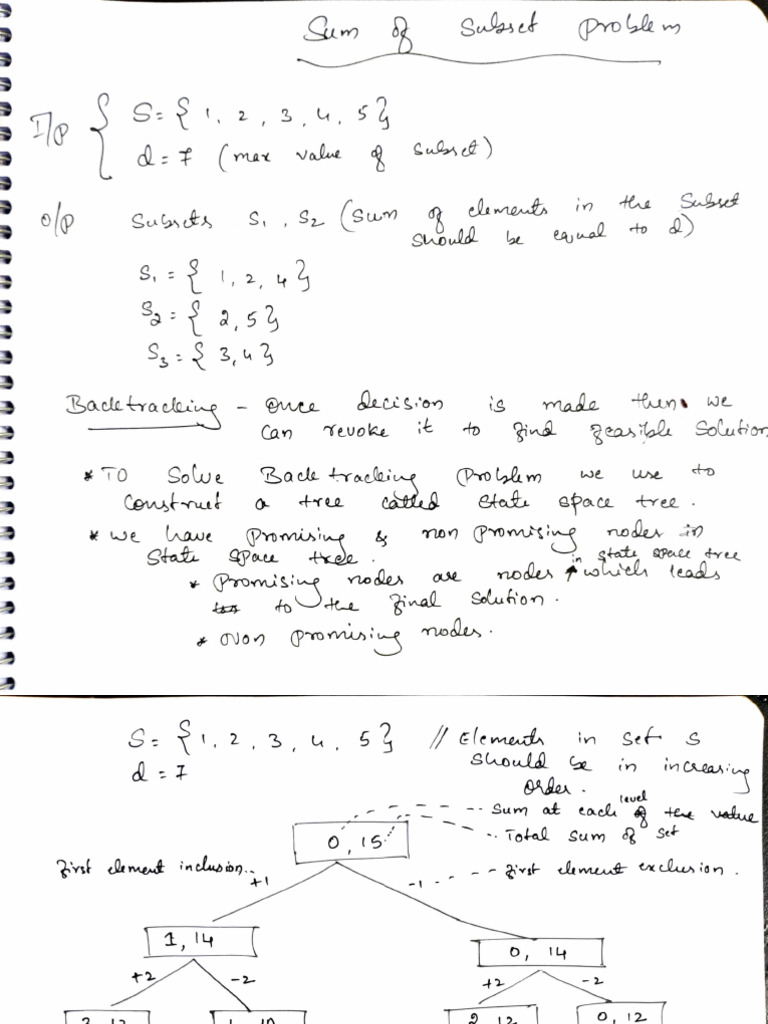 Sum of Subset Problem
I/P { S = { 1, 2, 3, 4, 5 }
d = 7 (max value of subset)
O/P Subsets S1, S2 (Sum of elements in the subset
should be equal to d)
S1 = { 1, 2, 4 }
S2 = { 2, 5 }
S3 = { 3, 4 }
Backtracking - Once decision is made then we
can revoke it to find feasible solution
* To solve Backtracking Problem we use to
construct a tree called state space tree.
* We have promising & non promising nodes in
state space tree.
* Promising nodes are nodes in state space tree which leads
to the final solution.
* Non promising nodes.
S = { 1, 2, 3, 4, 5 } // Elements in set S
d = 7 should be in increasing
order.
Sum at each level
0, 15 Total sum of set
First element inclusion. +1 -1 First element exclusion.
1, 14 0, 14
+2 -2 +2 -2
0, 12